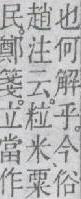 也何解乎今俗
趙注云粒米粟
民鄭箋立當作